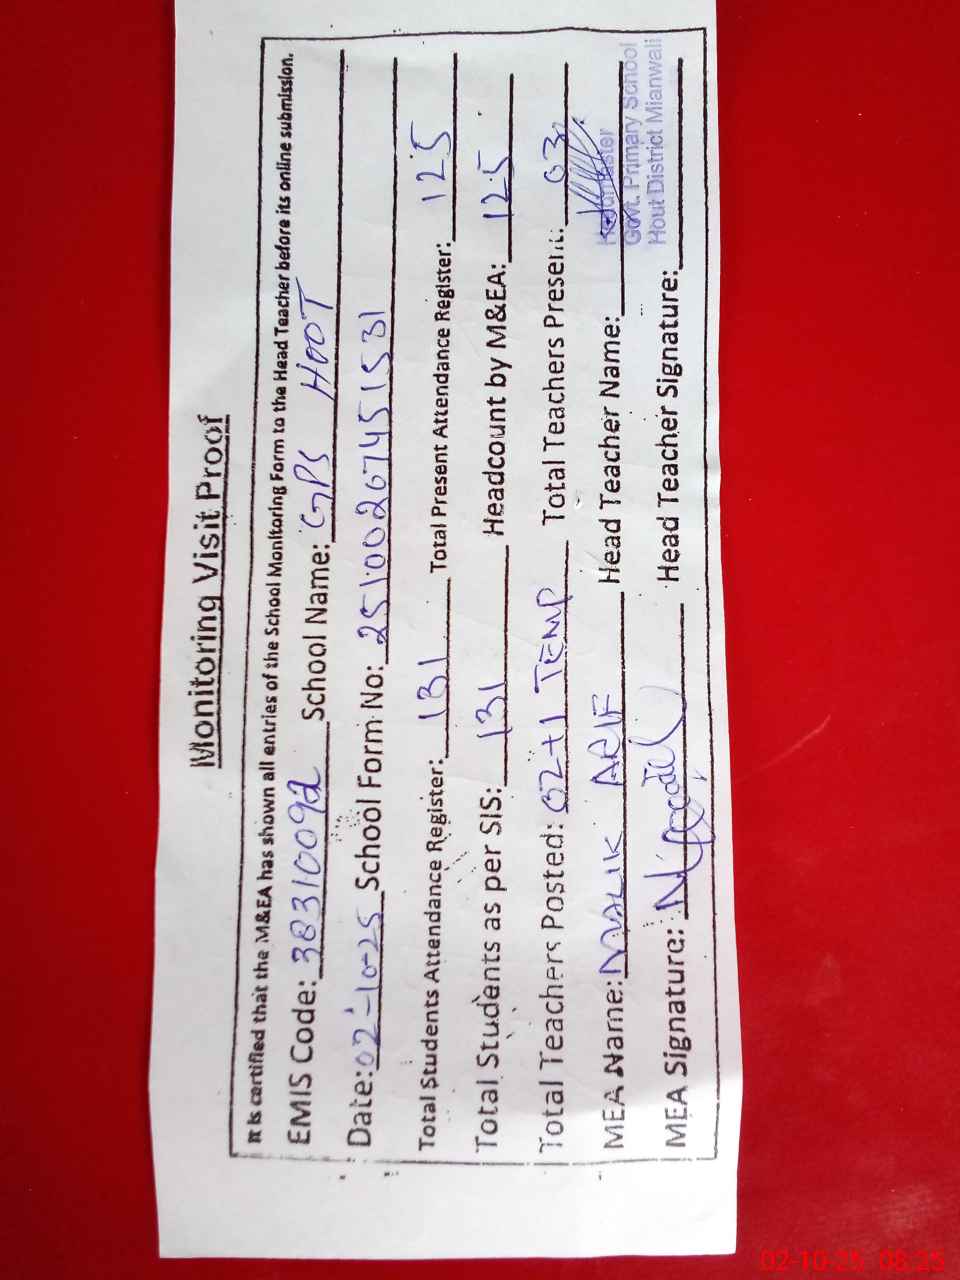 Monitoring Visit Proof
It is certified that the M&EA has shown all entries of the School Monitoring Form to the Head Teacher before its online submission.
EMIS Code: 38310092 School Name: GPS HOOT
Date: 02-10-25 School Form No: 2510026745 1531
Total Students Attendance Register: 131 Total Present Attendance Register: 125
Total Students as per SIS: 131 Headcount by M&EA: 125
Total Teachers Posted: 02+1 TEMP Total Teachers Present: 03
MEA Name: MALIK ARIF Head Teacher Name:
Headmaster
Govt. Primary School
Hout District Mianwali
MEA Signature: Head Teacher Signature:
02-10-25 08:25